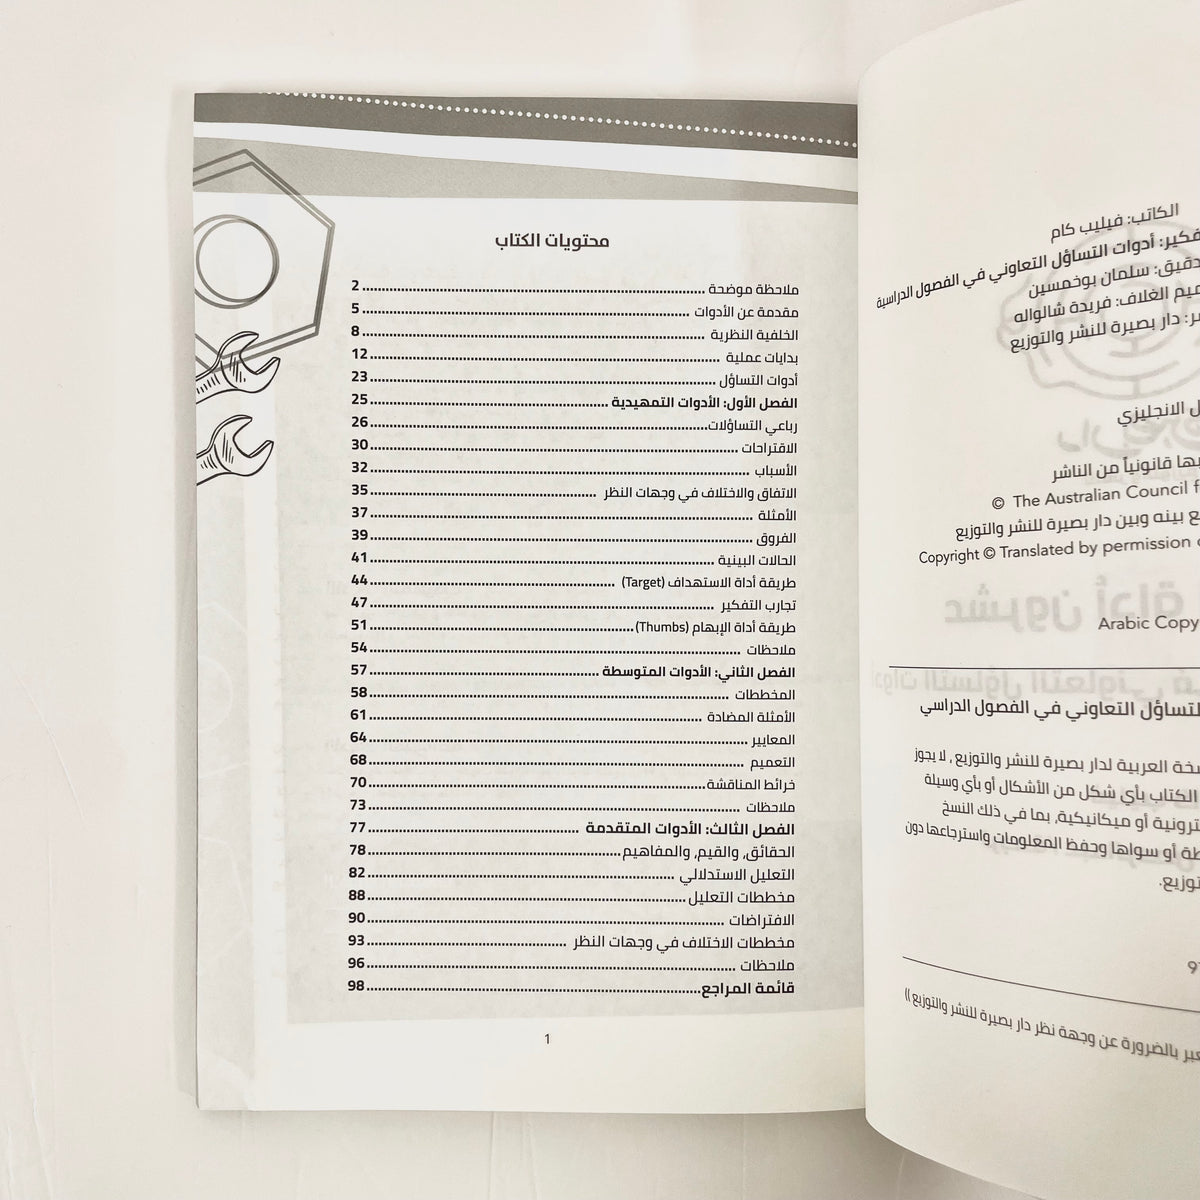 الكاتب: فيليب كام
أدوات التساؤل التعاوني في الفصول الدراسية
سلمان بوخمسين
الغلاف: فريدة شالواله
دار بصيرة للنشر والتوزيع
الانجليزي
قانونياً من الناشر
© The Australian Council
بينه وبين دار بصيرة للنشر والتوزيع
Copyright © Translated by permission
Arabic
التعاوني في الفصول الدراسي
العربية لدار بصيرة للنشر والتوزيع , لا يجوز
الكتاب بأي شكل من الأشكال أو بأي وسيلة
أو ميكانيكية, بما في ذلك النسخ
أو سواها وحفظ المعلومات واسترجاعها دون
بالضرورة عن وجهة نظر دار بصيرة للنشر والتوزيع ))
محتويات الكتاب
ملاحظة موضحة 2
مقدمة عن الأدوات 5
الخلفية النظرية 8
بدايات عملية 12
أدوات التساؤل 23
الفصل الأول: الأدوات التمهيدية 25
رباعي التساؤلات 26
الاقتراحات 30
الأسباب 32
الاتفاق والاختلاف في وجهات النظر 35
الأمثلة 37
الفروق 39
الحالات البينية 41
طريقة أداة الاستهداف (Target) 44
تجارب التفكير 47
طريقة أداة الإبهام (Thumbs) 51
ملاحظات 54
الفصل الثاني: الأدوات المتوسطة 57
المخططات 58
الأمثلة المضادة 61
المعايير 64
التعميم 68
خرائط المناقشة 70
ملاحظات 73
الفصل الثالث: الأدوات المتقدمة 77
الحقائق, والقيم, والمفاهيم 78
التعليل الاستدلالي 82
مخططات التعليل 88
الافتراضات 90
مخططات الاختلاف في وجهات النظر 93
ملاحظات 96
قائمة المراجع 98
1